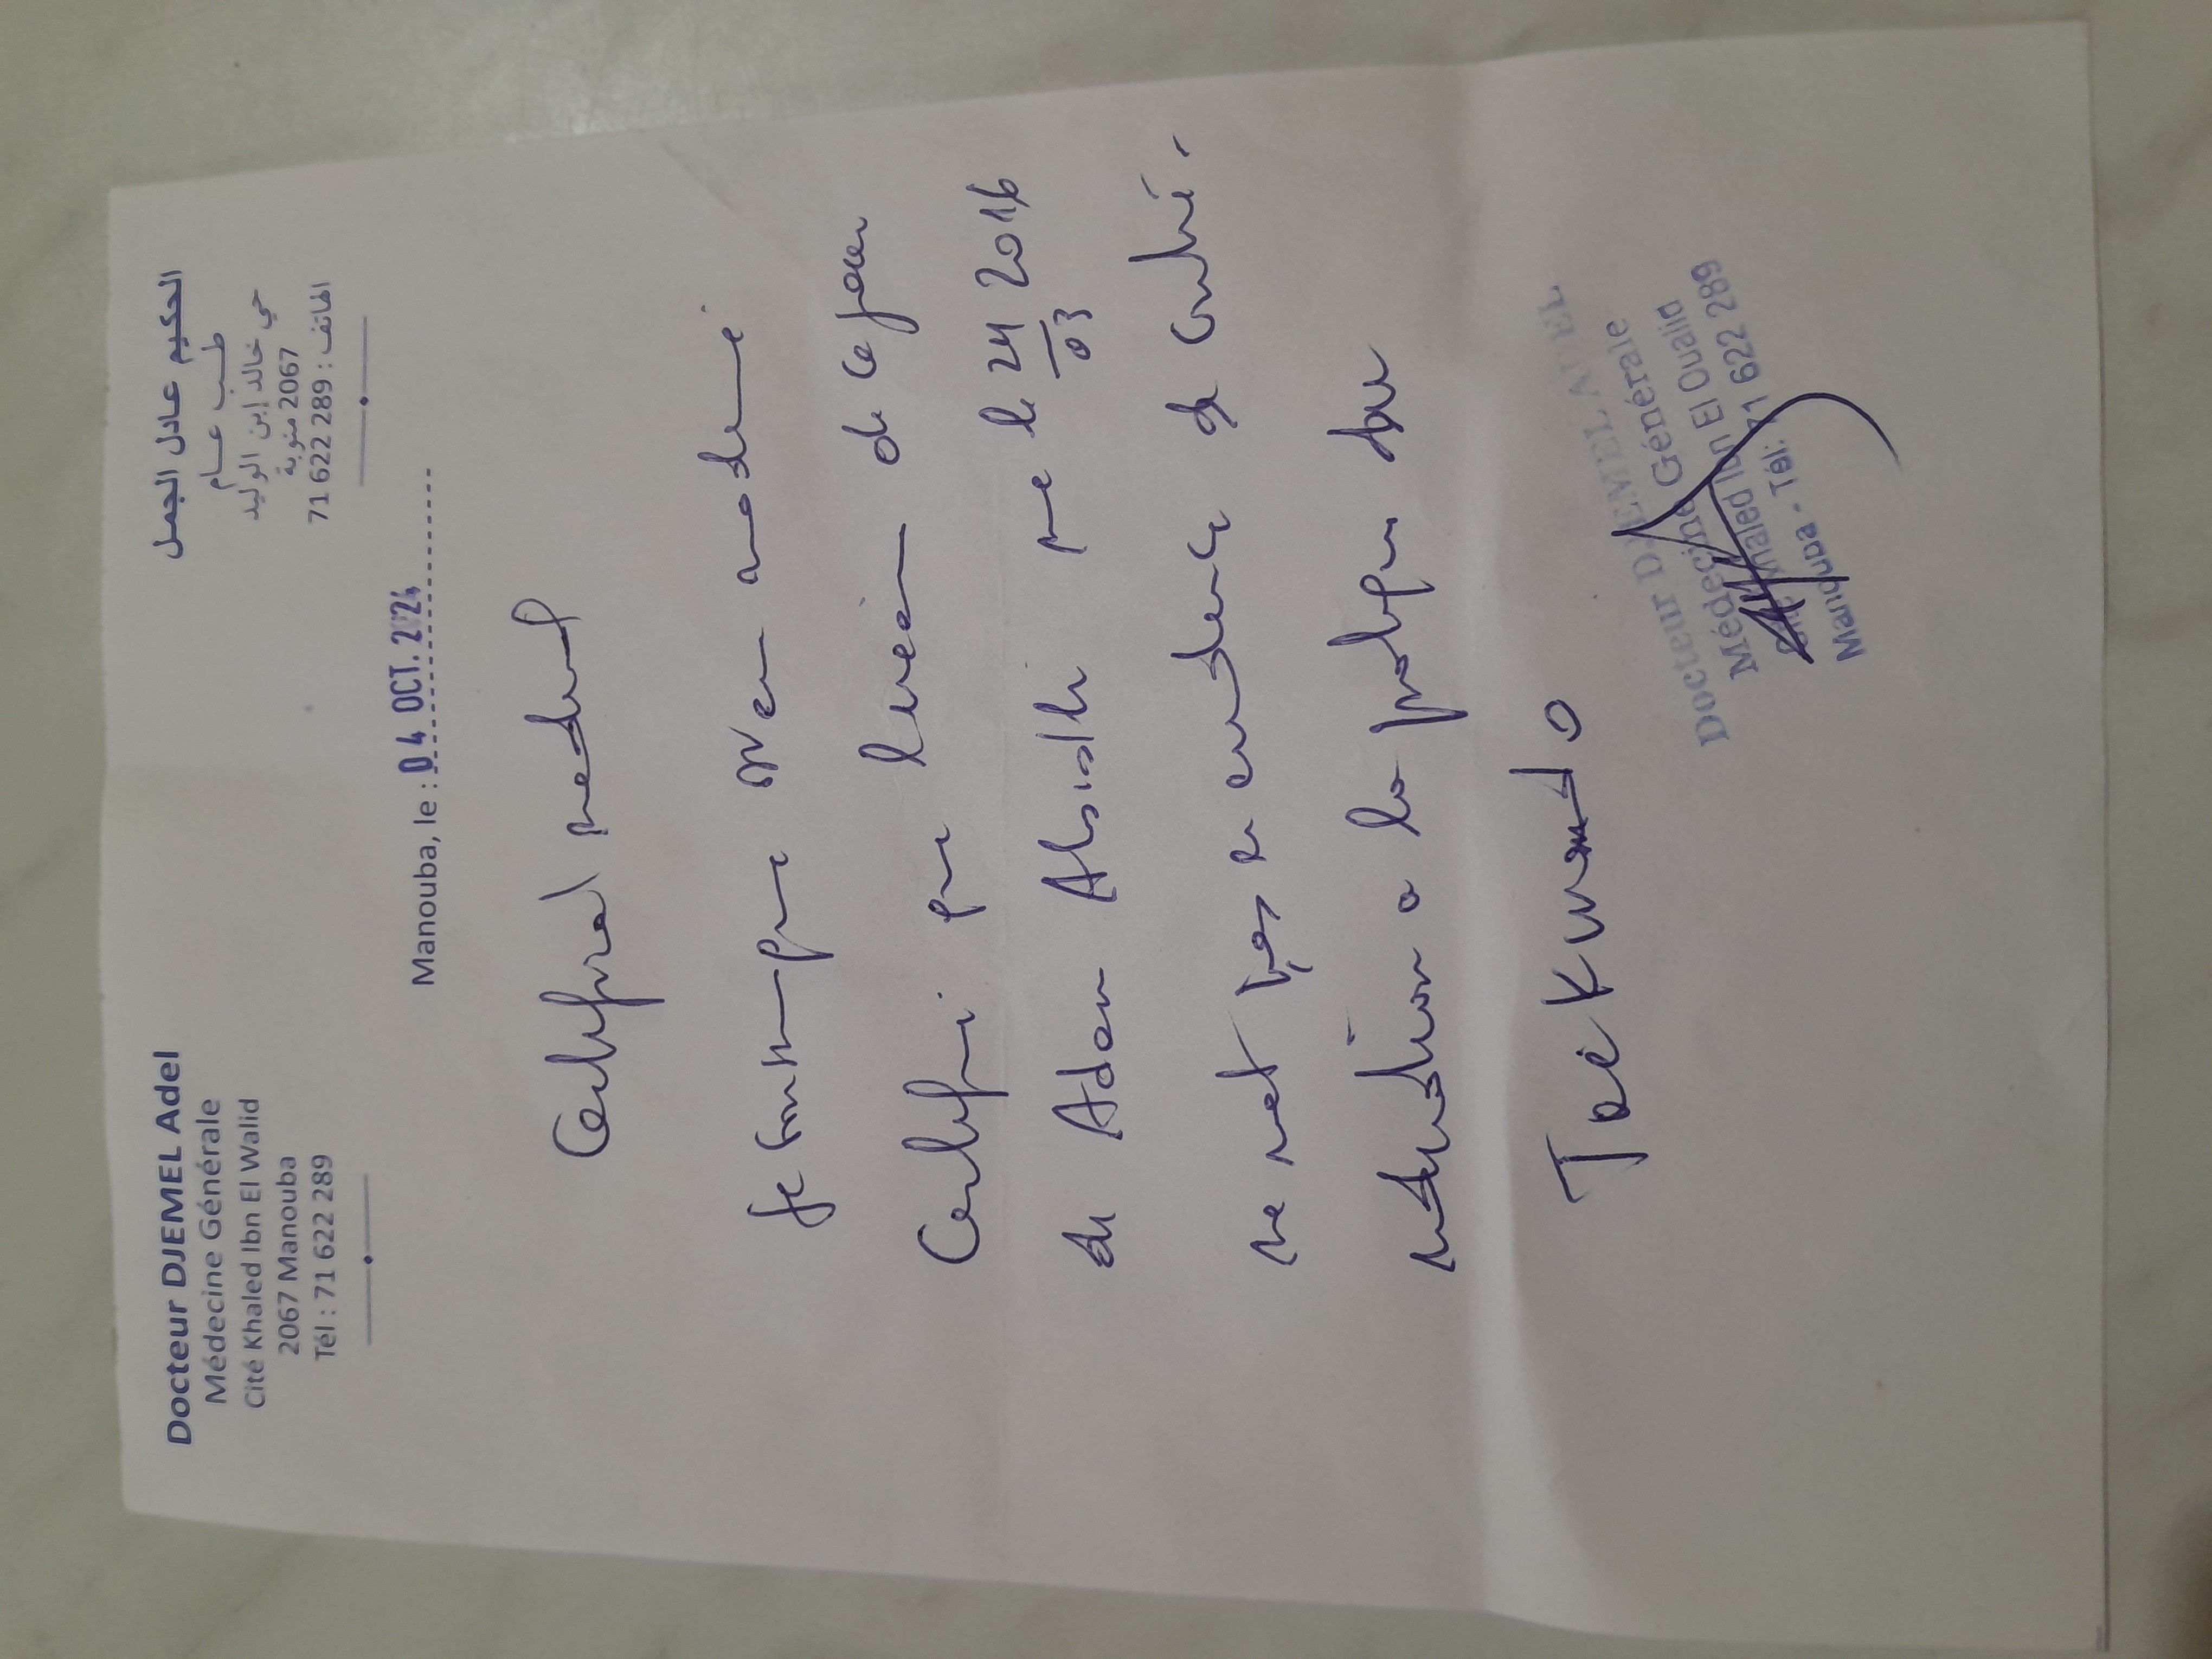 Docteur DJEMEL Adel
Médecine Générale
Cité Khaled Ibn El Walid
2067 Manouba
Tél : 71 622 289
الحكيم عادل الجمل
طب عام
حي خالد إبن الوليد
2067 منوبة
الهاتف : 71 622 289
Manouba, le : 04 OCT. 2024
Certificat medical
Je soussigné Dr en medecine
Certifie que l'examen de ce jour
de Adam né le 24/03 2016
ne met pas en evidence de contre
indication a la pratique du
Taekwondo
Docteur DJEMEL ADEL
Médecine Générale
Cité Khaled Ibn El Oualid
Manouba - Tél: 71 622 289